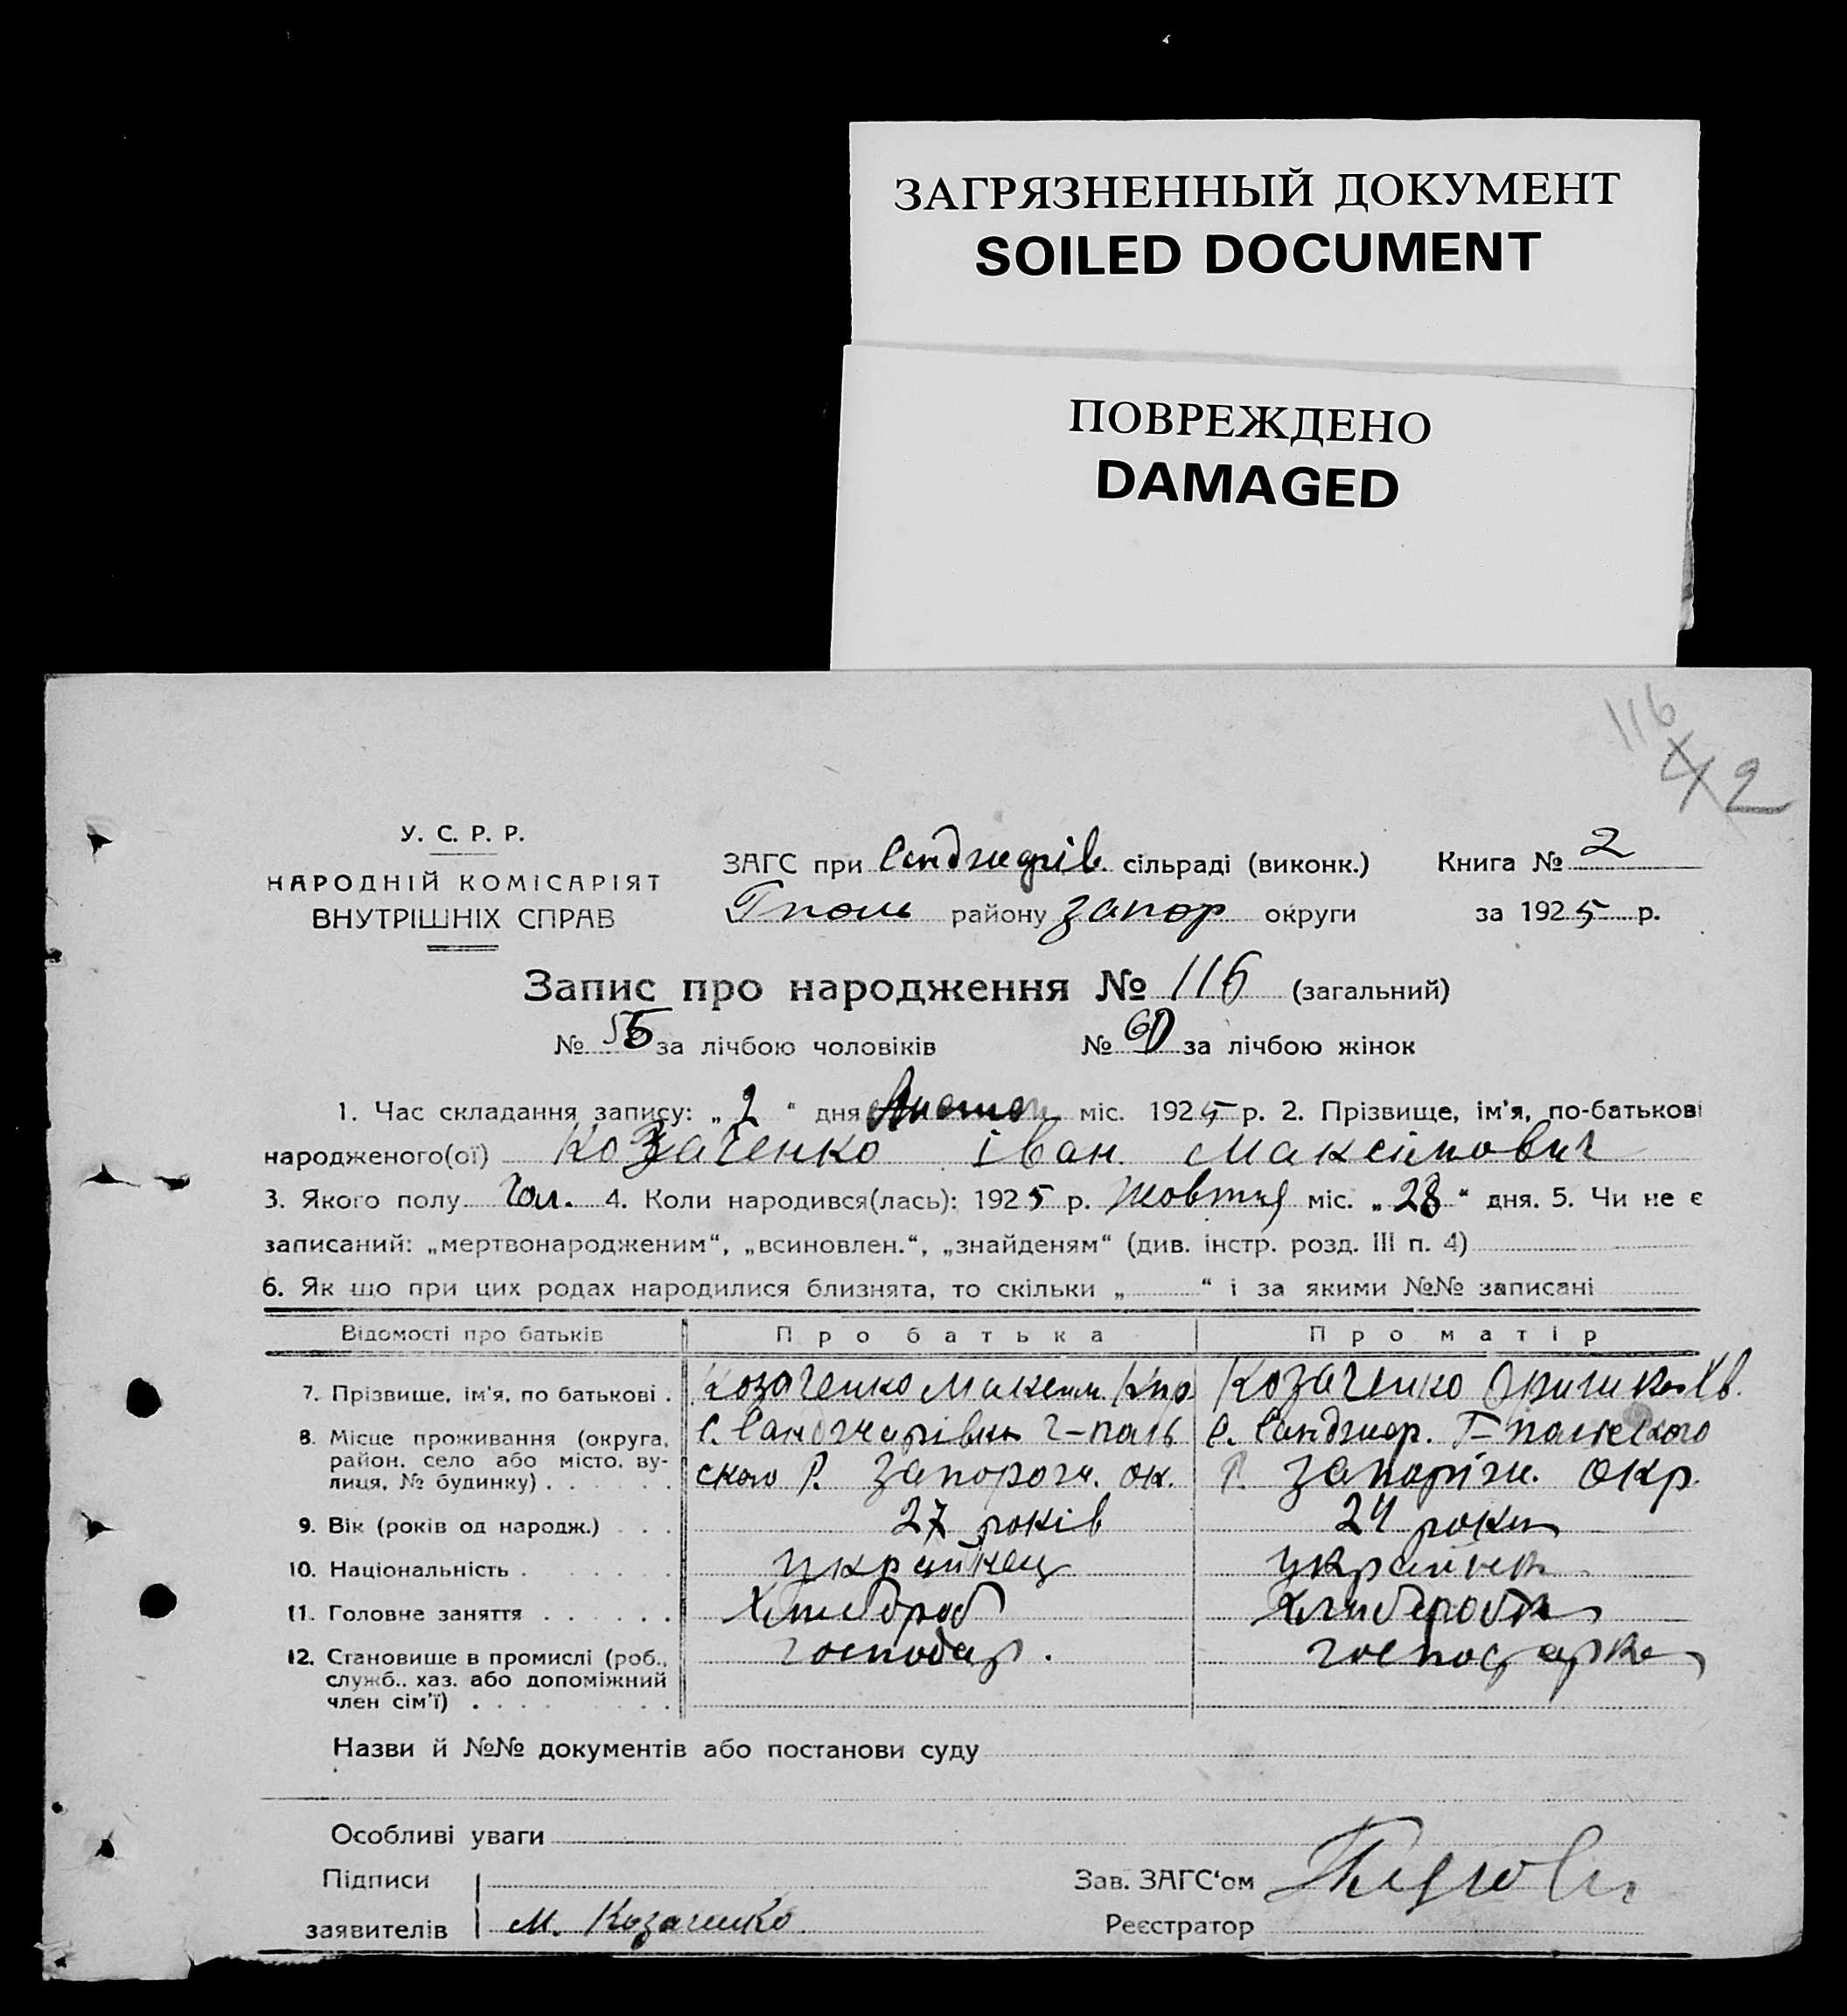 ЗАГРЯЗНЕННЫЙ ДОКУМЕНТ
SOILED DOCUMENT
ПОВРЕЖДЕНО
DAMAGED
116
2
У. С. Р. Р.
НАРОДНІЙ КОМІСАРІЯТ
ВНУТРІШНІХ СПРАВ
ЗАГС при Санджарів. сільраді (виконк.) Книга № 2
Гполь району Запор округи за 1925 р.
Запис про народження № 116 (загальний)
№ за лічбою чоловіків № за лічбою жінок
1. Час складання запису: „ 2 “ дня міс. 1925 р. 2. Прізвище, ім'я, по-батькові
народженого(ої) Козаченко Іван Максимович
3. Якого полу Чол. 4. Коли народився(лась): 1925 р. Жовтня міс. „ 28 “ дня. 5. Чи не є
записаний: „мертвонародженим“, „всиновлен.“, „знайденям“ (див. інстр. розд. III п. 4)
6. Як що при цих родах народилися близнята, то скільки „ “ і за якими №№ записані
Відомості про батьків Про батька Про матір
7. Прізвище, ім'я, по батькові . Козаченко Максим Кпр. Козаченко Оришка Ів.
8. Місце проживання (округа, район, село або місто, вулиця, № будинку) с. Санджарівка Г-поль с. Санджар. Г-польского
ского Р. Запорож. ок. Р. Запоріж. окр.
9. Вік (років од народж.) . . . 27 років 24 роки
10. Національність . українець українка
11. Головне заняття . . . . . . Хлибороб Хлиборобка
12. Становище в промислі (роб., служб., хаз. або допоміжний член сім'ї) господар. господарка
Назви й №№ документів або постанови суду
Особливі уваги
Підписи
заявителів М. Козаченко
Зав. ЗАГС'ом
Реєстратор